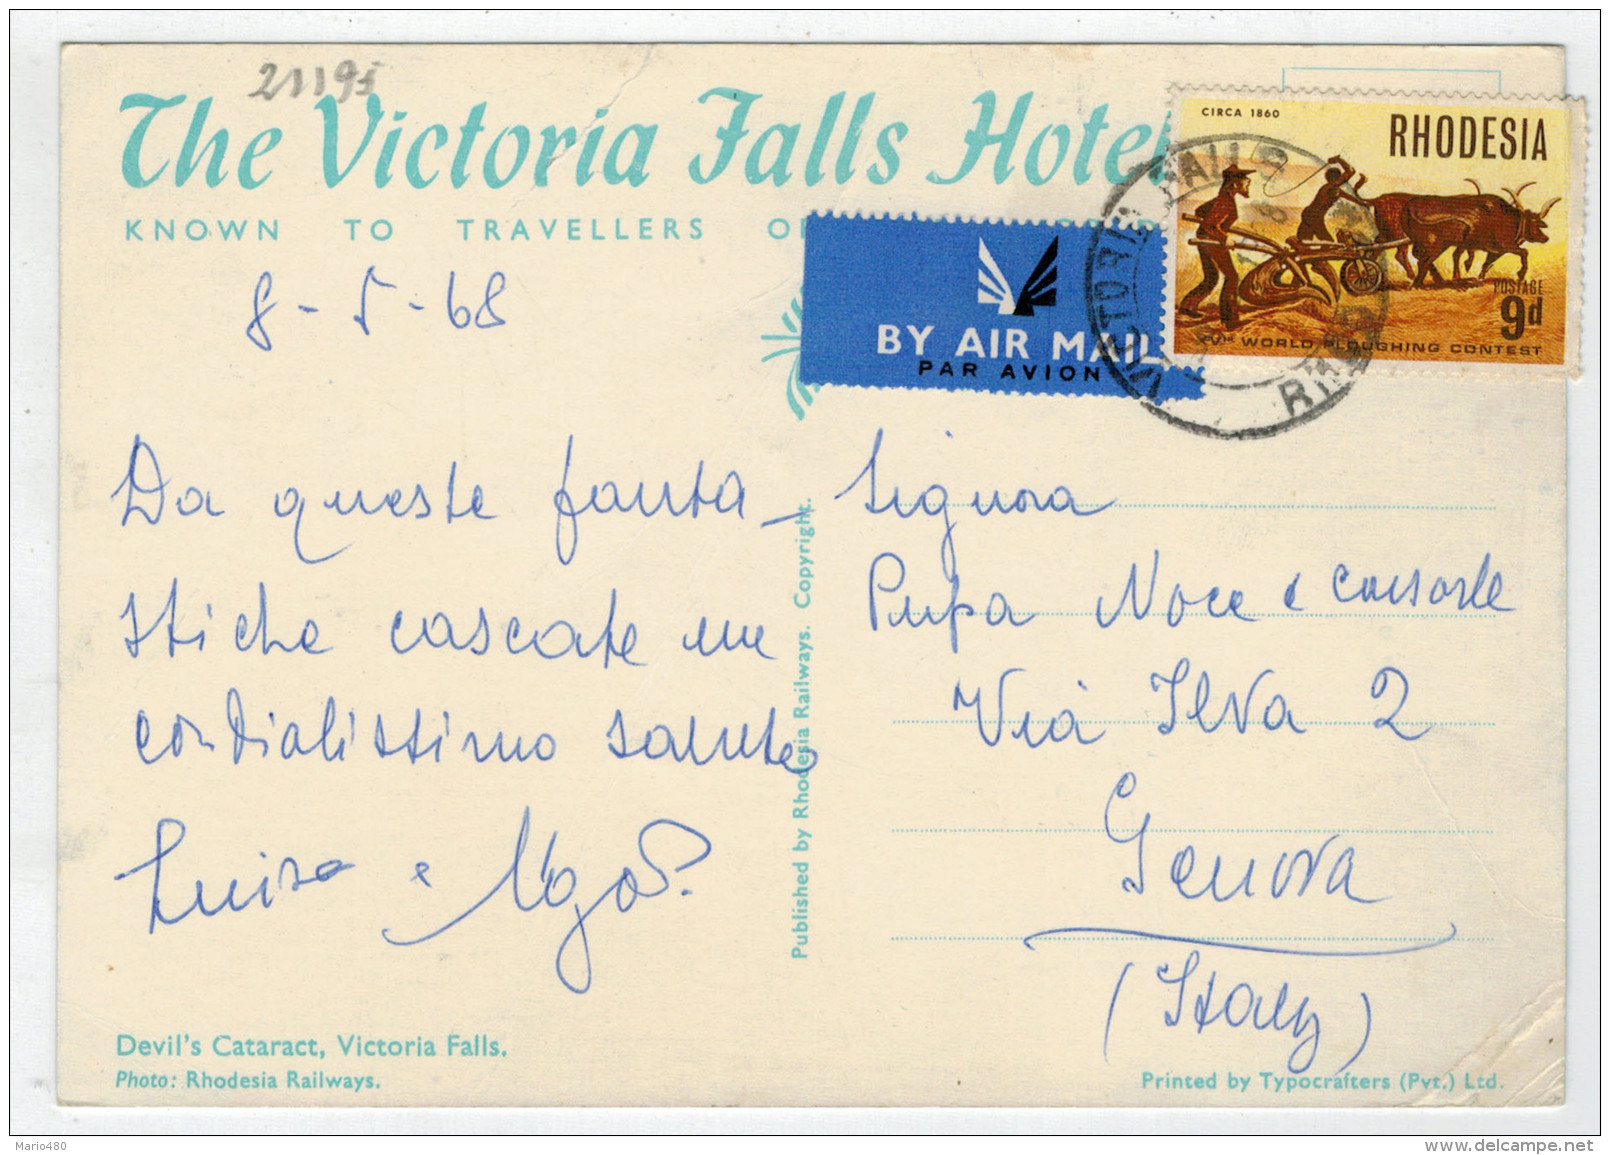 21195
The Victoria Falls Hotel
KNOWN TO TRAVELLERS
CIRCA 1860
RHODESIA
POSTAGE
9d
XVTH WORLD PLOUGHING CONTEST
VICTORIA FALLS
BY AIR MAIL
PAR AVION
8-5-68
Da queste fanta-
stiche cascate un
cordialissimo saluto
Luisa e Ugo P.
Published by Rhodesia Railways. Copyright.
Signora
Pupa Noce e consorte
Via Ilva 2
Genova
(Italy)
Devil's Cataract, Victoria Falls.
Photo: Rhodesia Railways.
Printed by Typocrafters (Pvt.) Ltd.
Mario480
www.delcampe.net